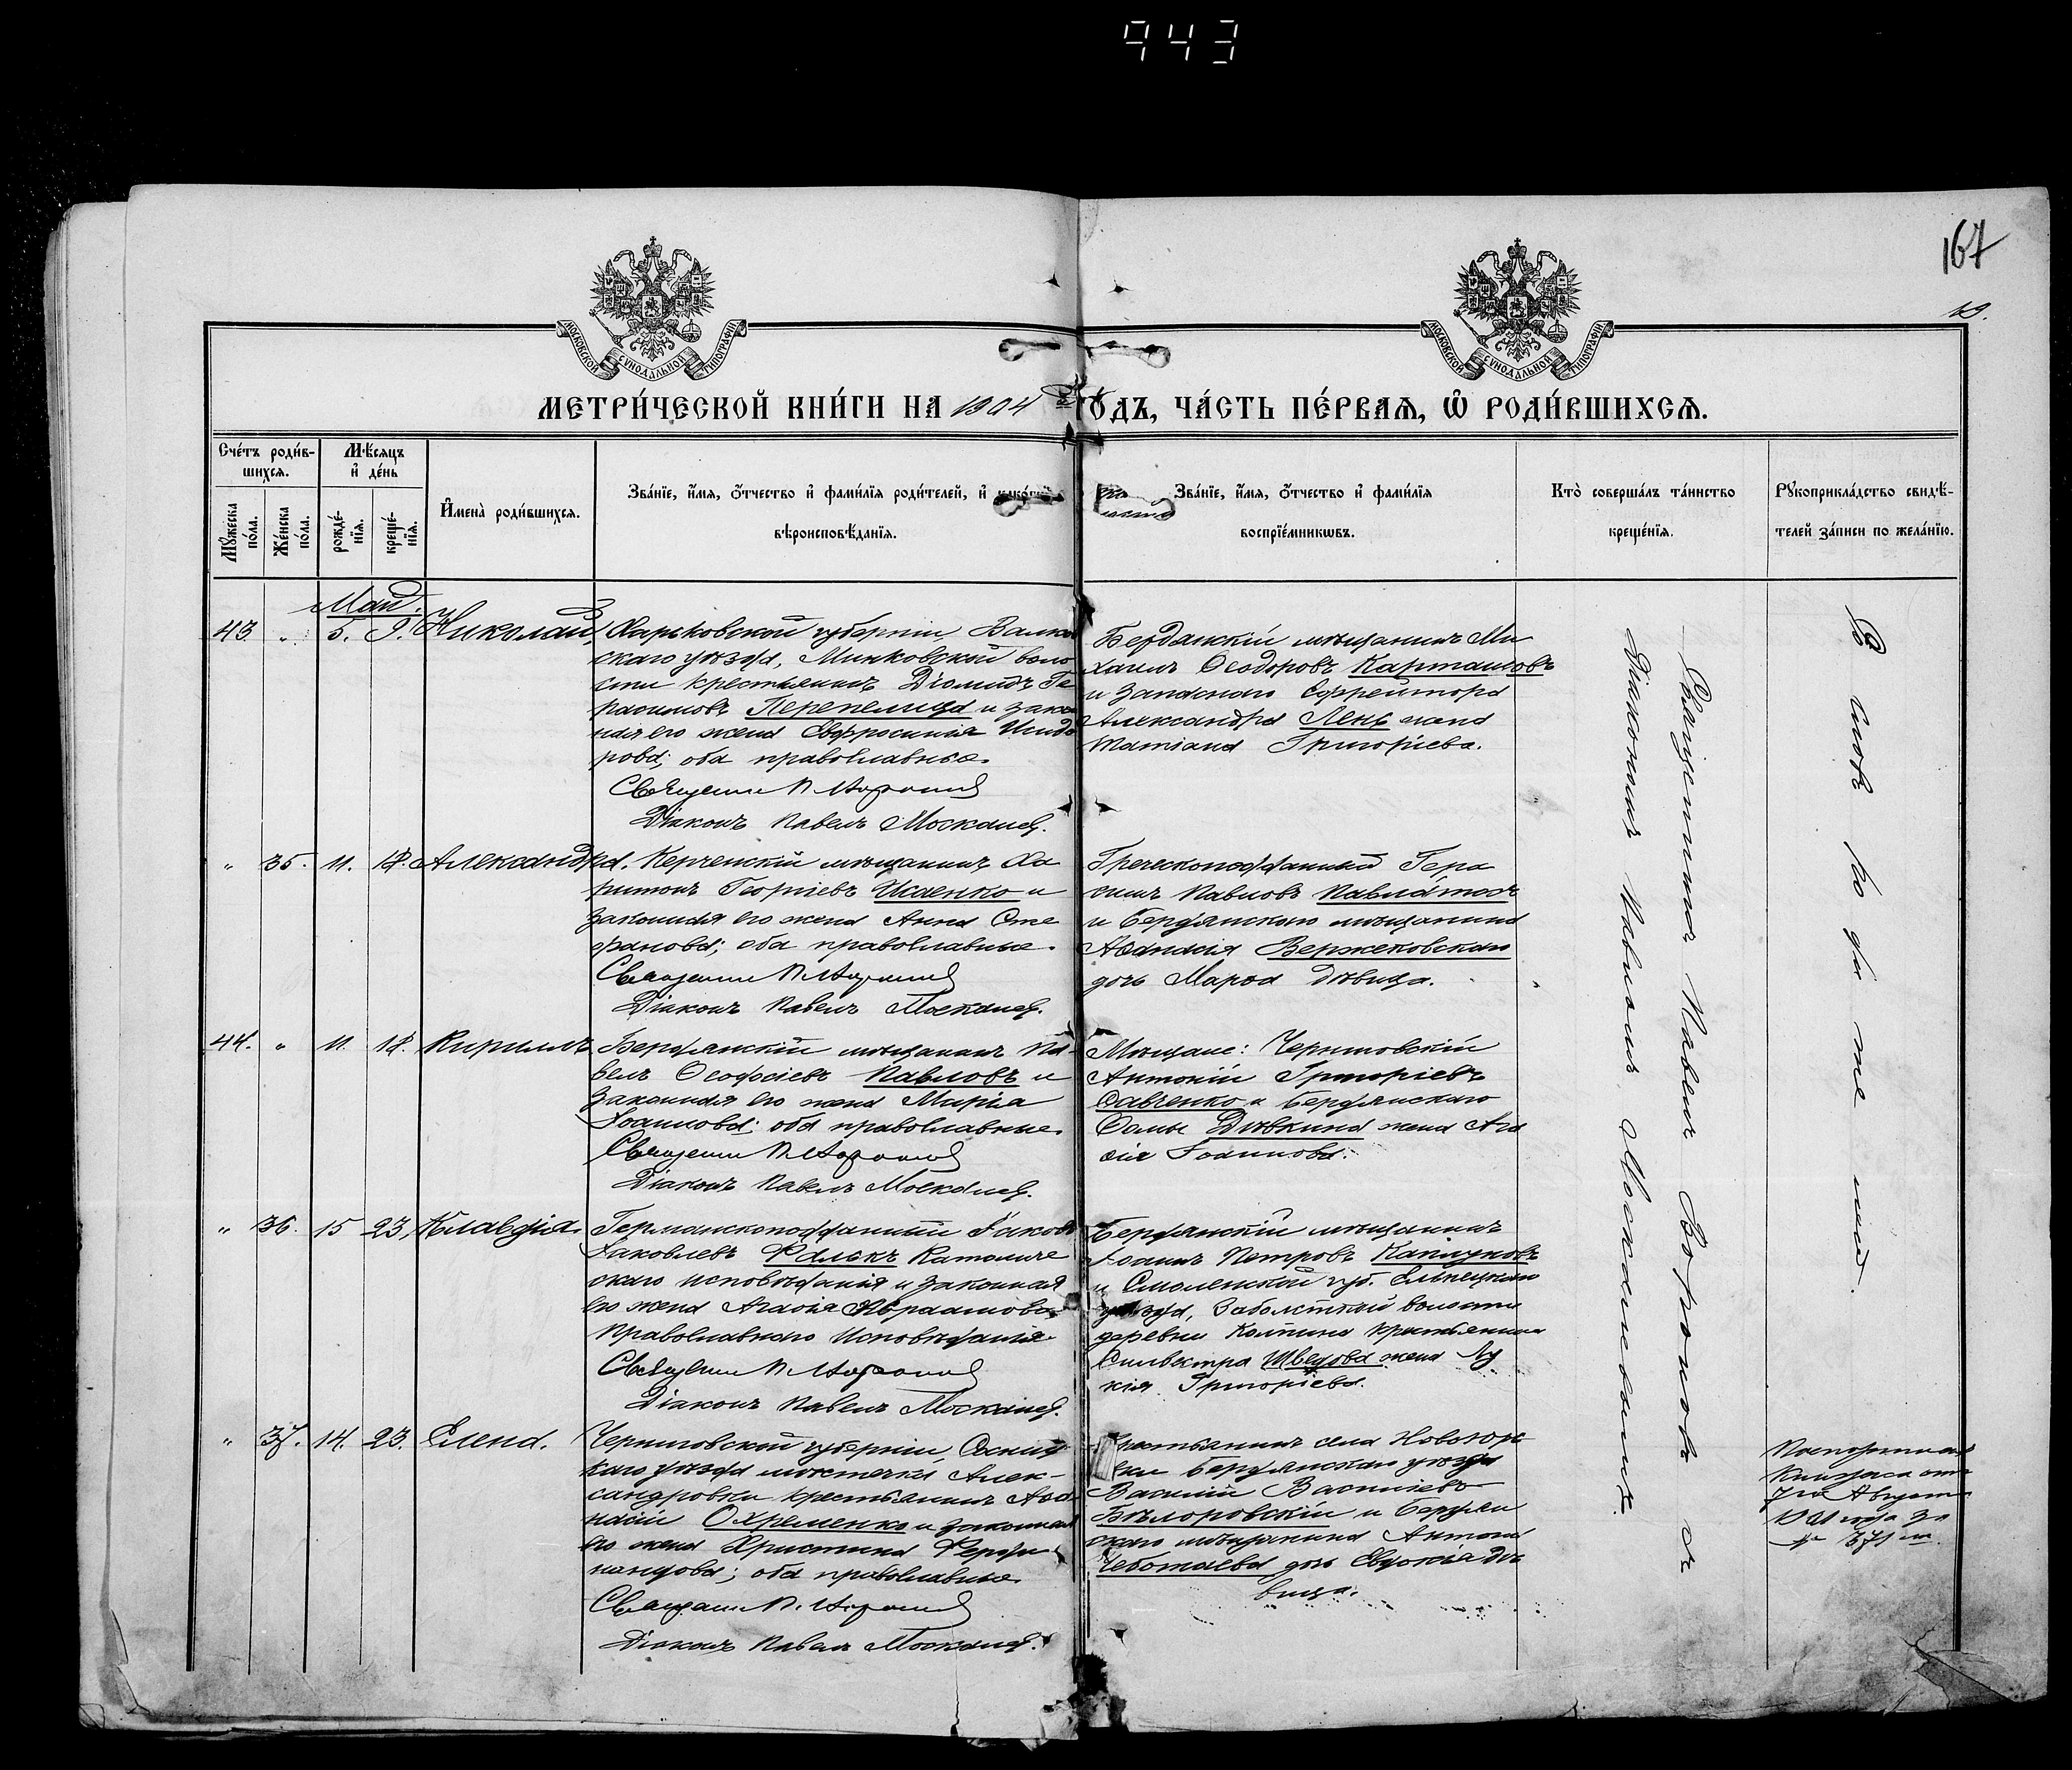 943
167
19.
МОСКОВСКОЙ СѴНОДАЛЬНОЙ ТИПОГРАФІИ
МОСКОВСКОЙ СѴНОДАЛЬНОЙ ТИПОГРАФІИ
МЕТРИ́ЧЕСКОЙ КНИ́ГИ НА 1904 й ГО́ДЪ, ЧА́СТЬ ПЕ́РВАѦ, Ѽ РОДИ́ВШИХСѦ.
Сче́тъ роди́в-
шихсѧ.
Му́жеска по́ла.
Же́нска по́ла.
Мѣ́сѧцъ
и҆ де́нь
рожде́-
нїѧ.
креще́-
нїѧ.
И҆мена̀ роди́вшихсѧ.
Зва́нїе, и҆́мѧ, ѻ҆́тчество и҆ фами́лїѧ роди́телей, и҆
вѣроисповѣ́данїѧ.
Зва́нїе, и҆́мѧ, ѻ҆́тчество и҆ фами́лїѧ
воспрїе́мникѡвъ.
Кто̀ соверша́лъ та́инство
креще́нїѧ.
Рꙋкоприкла́дство свидѣ́-
телей за́писи по жела́нїю.
Май.
43 „ 5. 9. Николай,
Харьковской губерніи Валков
скаго уѣзда, Минковской воло
сти крестьянинъ Діомидъ Ге
расимовъ Перепелица и закон
ная его жена Евфросинія Исидо
рова; оба православные.
Священн. П. Воронов
Діаконъ Павелъ Москалев.
Бердянскій мѣщанинъ Ми
хаилъ Ѳеодоровъ Карташовъ
и запаснаго ефрейтора
Александра Лень жена
Матіана Григорьева.
„ 35. 11. 18. Александра.
Керченскій мѣщанинъ Ха
ритонъ Георгіевъ Исаенко и
законная его жена Анна Сте
фанова; оба православные.
Священн. П. Воронов
Діаконъ Павелъ Москалев.
Греческоподданный Гера
симъ Павловъ Павлатосъ
и Бердянскаго мѣщанина
Аѳанасія Вержековскаго
дочь Марѳа дѣвица.
44. „ 11. 18. Кириллъ
Бердянскій мѣщанинъ Па
велъ Ѳеодосіевъ Павловъ и
законная его жена Марія
Іоаннова; оба православные.
Священн. П. Воронов
Діаконъ Павелъ Москалев.
Мѣщане: Черниговскій
Антоній Григоріевъ
Савченко и Бердянскаго
Ѳомы Дѣвкина жена Ага
ѳія Іоаннова.
„ 36. 15 23, Клавдія.
Германскоподданный Іаковъ
Іаковлевъ Фалькъ Католиче
скаго исповѣданія и законная
его жена Агаѳія Авраамова
Православнаго Исповѣданія
Священн. П. Воронов
Діаконъ Павелъ Москалев.
Бердянскій мѣщанинъ
Іоаннъ Петровъ Капцуковъ
и Смоленской губ. Ельнецкаго
уѣзда, волости
деревни крестьянина
Сильвестра Швецова жена Лу
кія Григоріева.
„ 37. 14. 23. Елена.
Черниговской губерніи, Сосниц
каго уѣзда мѣстечка Алек-
сандровки крестьянинъ Аѳа
насій Охременко и законная
его жена Христина Ферди
нандова; оба православные.
Священн. П. Воронов
Діаконъ Павелъ Москалев.
Крестьянинъ села
Бердянскаго уѣзда
Василій Васильевъ
Бѣлоровскій и Бердян
скаго мѣщанина Антонія
Чеботаева дочь Евдокія дѣ
вица.
Священникъ Павелъ Вороновъ съ
Діакономъ Павломъ Москалевымъ.